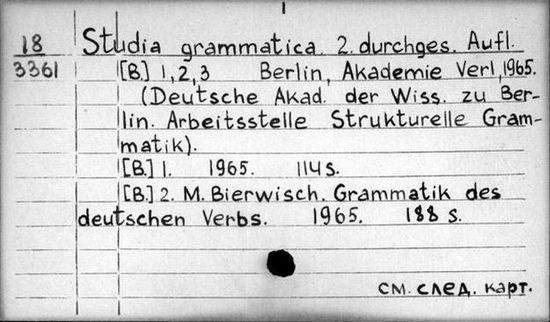 18
3361
Studia grammatica. 2. durchges. Aufl.
[B.] 1, 2, 3 Berlin, Akademie Verl, 1965.
(Deutsche Akad. der Wiss. zu Ber-
lin. Arbeitsstelle Strukturelle Gram-
matik).
[B.] 1. 1965. 114 S.
[B.] 2. M. Bierwisch. Grammatik des
deutschen Verbs. 1965. 188 S.
см. след. карт.